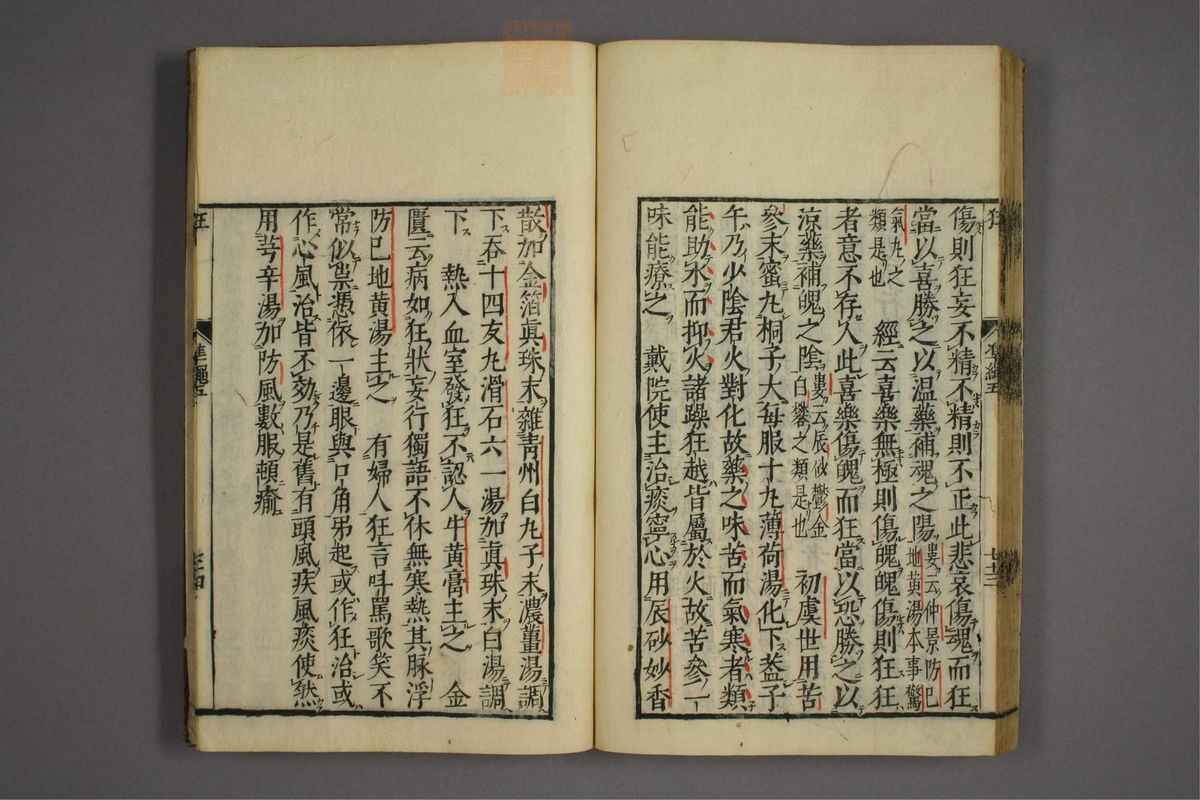 傷則狂妄不精不精則不正此悲哀傷魂而狂
當以喜勝之以温藥補魂之陽婁云仲景防巳
地黄湯本事驚
氣丸之
類是也
經云喜樂無極則傷魄魄傷則狂狂
者意不存人此喜樂傷魄而狂當以恐勝之以
涼藥補魄之陰婁云辰砂鬱金
白礬之類是也
初虞世用苦
參末蜜丸桐子大每服十丸薄荷湯化下葢子
午乃少陰君火對化故藥之味苦而氣寒者類
能助水而抑火諸躁狂越皆屬於火故苦參一
味能療之　戴院使主治痰寧心用辰砂妙香
散加金箔眞珠末雜青州白丸子末濃薑湯調
下吞十四友丸滑石六一湯加眞珠末白湯調
下　熱入血室發狂不認人牛黄膏主之　金
匱云病如狂狀妄行獨語不休無寒熱其脉浮
防巳地黄湯主之　有婦人狂言呌罵歌笑不
常似祟憑依一邊眼與口角吊起或作狂治或
作心風治皆不効乃是舊有頭風疾風痰使然
用芎辛湯加防風數服頓瘉
狂
準繩五
七十三
狂
準繩五
七十四